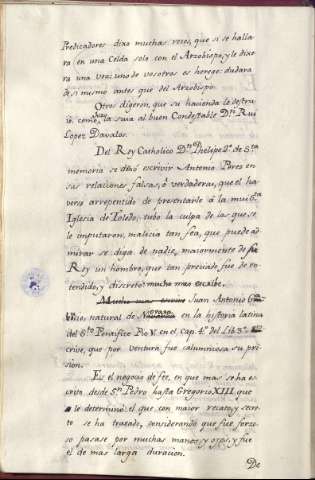 Predicadores dixo muchas veces, que si se halla-
ra en una Celda solo con el Arzobispo, y le dixe-
ra una voz: uno de vosotros es herege: dudara
de si mismo antes que del Arzobispo.
Otros digeron, que su hacienda le destru-
ió, como hizo la suia al buen Condestable Dn Rui
Lopez Davalos.
Del Rey Catholico Dn Phelipe 2º de Sta
memoria se dexó escrivir Antonio Perez en
sus relaciones falsas, ó verdaderas, que el ha-
verse arrepentido de presentarle á la mui Sta
Iglesia de Toledo, tubo la culpa de las que se
le imputaron, malicia tan fea, que puede ad-
mirar se diga de nadie, maiormente de
Rey un hombre, que tan privado fue de en-
tendido, y discreto: mucho mas escribe.
Juan Antonio
natural de en la historia latina
del Sto Pontifice Pio V. en el Cap. 4º del Lib. 3º es-
crive, que por ventura fue calumniosa su pri-
sion.
Es el negocio de fee, en que mas se ha es-
crito desde Sn Pedro hasta Gregorio XIII. que
le determinó: el que con maior recato, y secre-
to se ha tratado, considerando que fue forzo-
so pasase por muchas manos, y ojos, y fue
el de mas larga duracion.
De